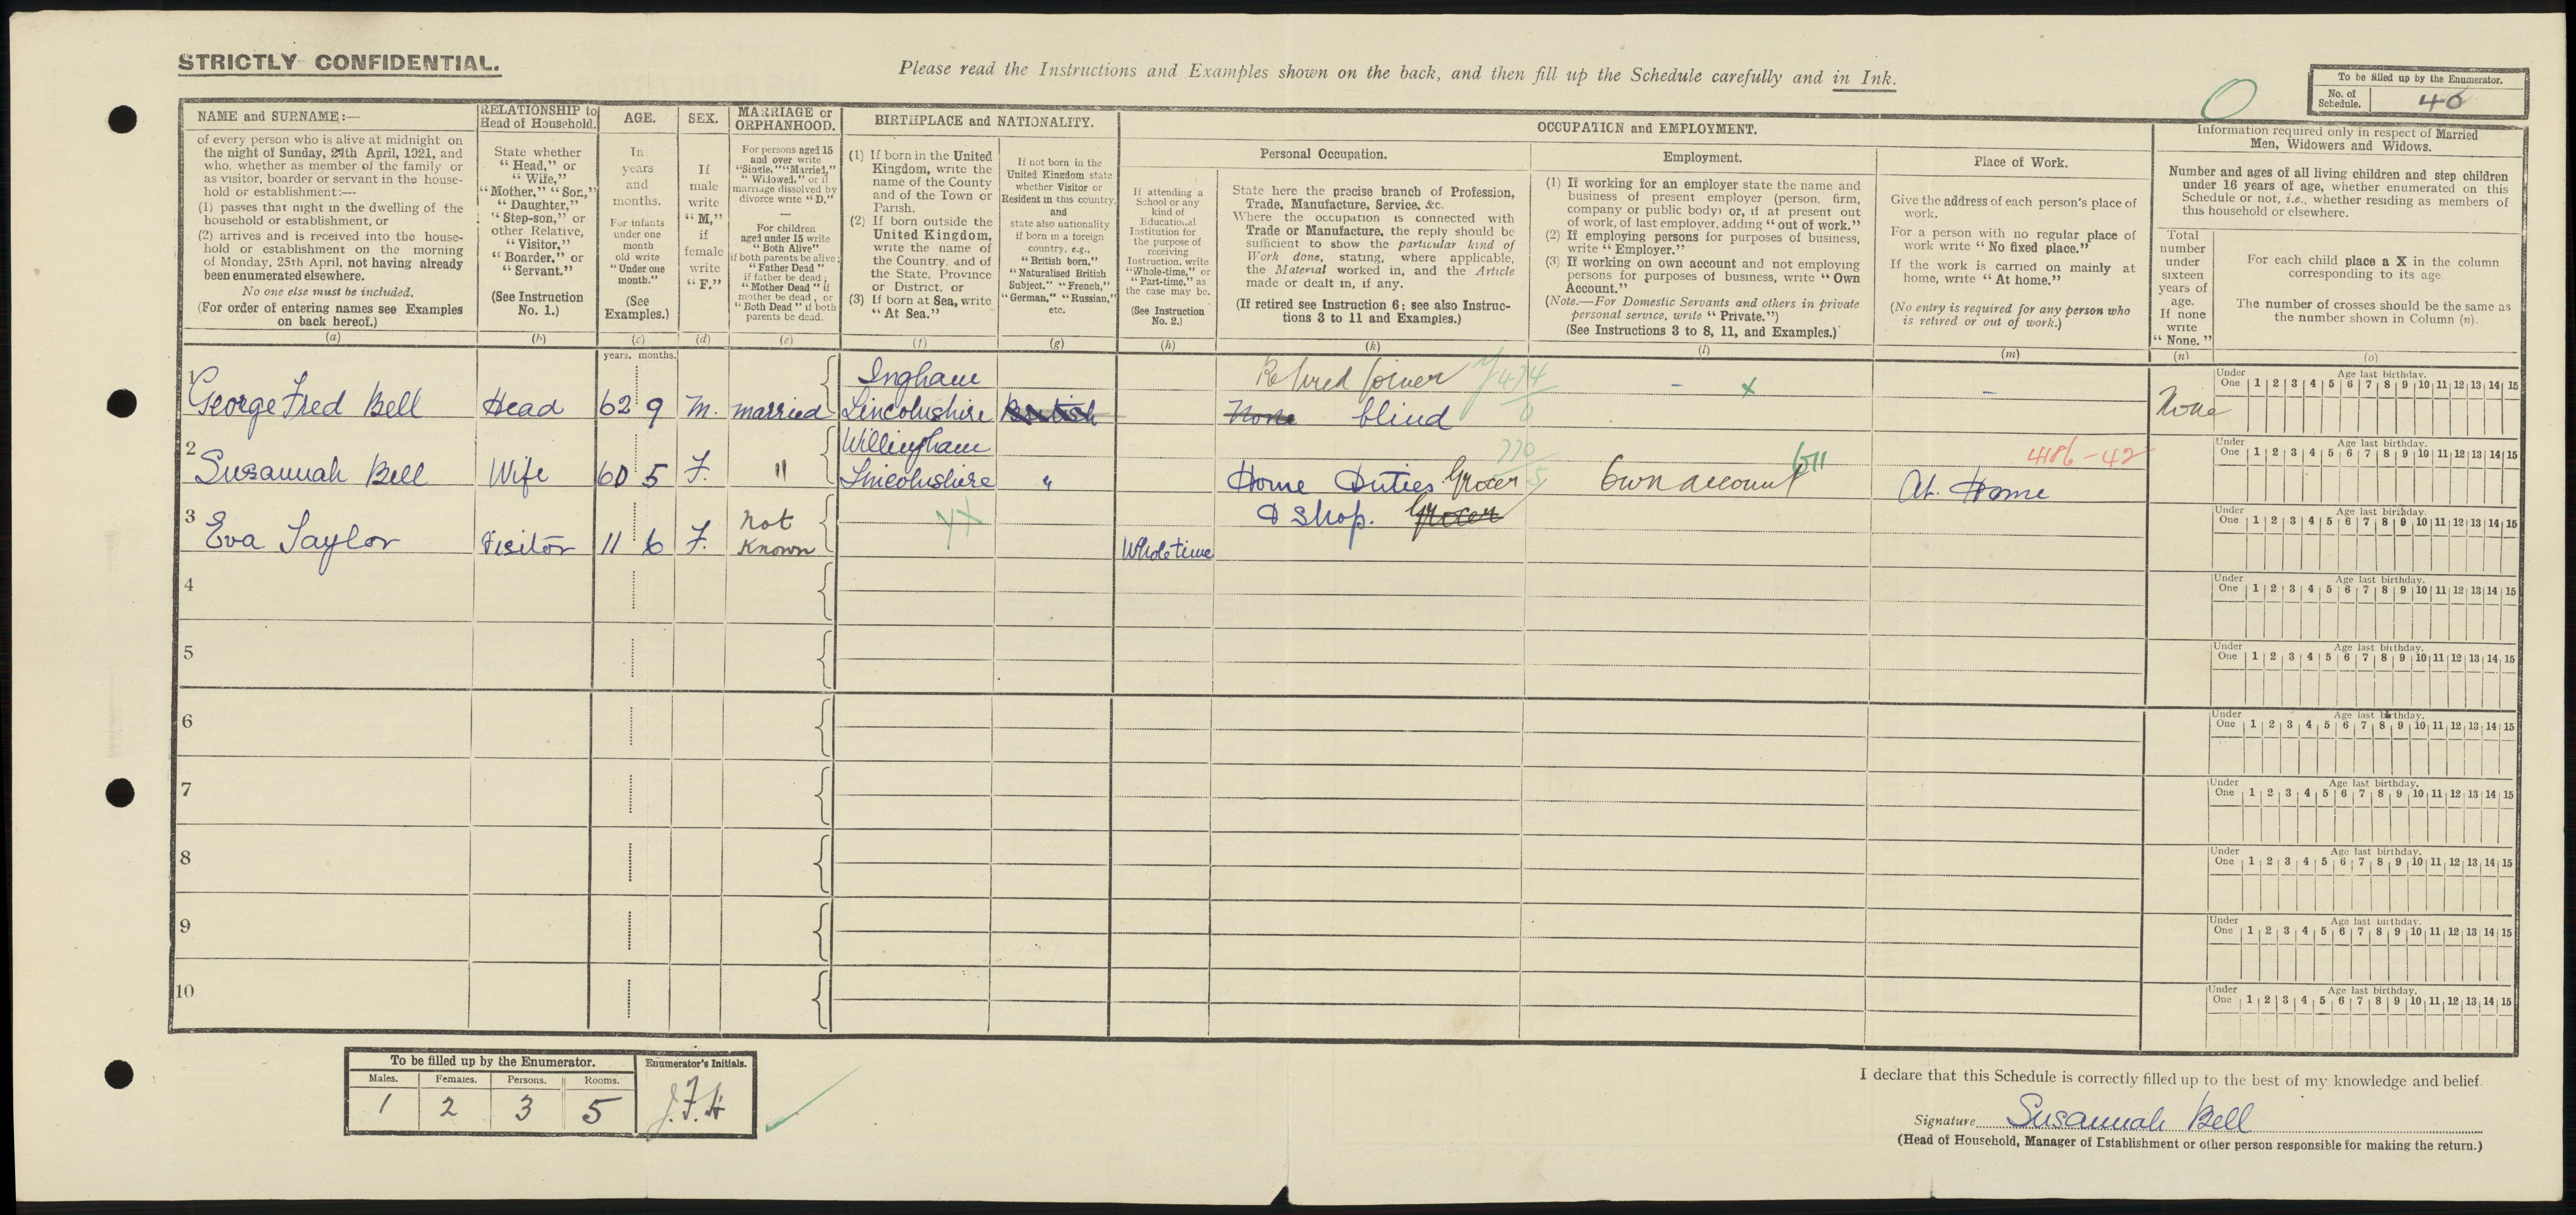 STRICTLY CONFIDENTIAL.
Please read the Instructions and Examples shown on the back, and then fill up the Schedule carefully and in Ink.
To be filled up by the Enumerator.
No. of Schedule. 46
NAME and SURNAME:—
of every person who is alive at midnight on
the night of Sunday, 24th April, 1921, and
who, whether as member of the family or
as visitor, boarder or servant in the house-
hold or establishment:—
(1) passes that night in the dwelling of the
household or establishment, or
(2) arrives and is received into the house-
hold or establishment on the morning
of Monday, 25th April, not having already
been enumerated elsewhere.
No one else must be included.
(For order of entering names see Examples
on back hereof.)
(a)
RELATIONSHIP to
Head of Household.
State whether
"Head," or
"Wife,"
"Mother," "Son,"
"Daughter,"
"Step-son," or
other Relative,
"Visitor,"
"Boarder," or
"Servant."
(See Instruction
No. 1.)
(b)
AGE.
In
years
and
months.
For infants
under one
month
old write
"Under one
month."
(See
Examples.)
(c)
SEX.
If
male
write
"M,"
if
female
write
"F."
(d)
MARRIAGE or
ORPHANHOOD.
For persons aged 15
and over write
"Single," "Married,"
"Widowed," or if
marriage dissolved by
divorce write "D."
—
For children
aged under 15 write
"Both Alive"
if both parents be alive;
"Father Dead"
if father be dead;
"Mother Dead" if
mother be dead, or
"Both Dead" if both
parents be dead.
(e)
BIRTHPLACE and NATIONALITY.
(1) If born in the United
Kingdom, write the
name of the County
and of the Town or
Parish.
(2) If born outside the
United Kingdom,
write the name of
the Country, and of
the State, Province
or District, or
(3) If born at Sea, write
"At Sea."
(f)
If not born in the
United Kingdom state
whether Visitor or
Resident in this country,
and
state also nationality
if born in a foreign
country, e.g.,
"British born,"
"Naturalised British
Subject," "French,"
"German," "Russian,"
etc.
(g)
OCCUPATION and EMPLOYMENT.
Personal Occupation.
If attending a
School or any
kind of
Educational
Institution for
the purpose of
receiving
Instruction, write
"Whole-time," or
"Part-time," as
the case may be.
(See Instruction
No. 2.)
(h)
State here the precise branch of Profession,
Trade, Manufacture, Service, &c.
Where the occupation is connected with
Trade or Manufacture, the reply should be
sufficient to show the particular kind of
Work done, stating, where applicable,
the Material worked in, and the Article
made or dealt in, if any.
(If retired see Instruction 6; see also Instruc-
tions 3 to 11 and Examples.)
(k)
Employment.
(1) If working for an employer state the name and
business of present employer (person, firm,
company or public body) or, if at present out
of work, of last employer, adding "out of work."
(2) If employing persons for purposes of business,
write "Employer."
(3) If working on own account and not employing
persons for purposes of business, write "Own
Account."
(Note.—For Domestic Servants and others in private
personal service, write "Private.")
(See Instructions 3 to 8, 11, and Examples.)
(l)
Place of Work.
Give the address of each person's place of
work.
For a person with no regular place of
work write "No fixed place."
If the work is carried on mainly at
home, write "At home."
(No entry is required for any person who
is retired or out of work.)
(m)
Information required only in respect of Married
Men, Widowers and Widows.
Number and ages of all living children and step children
under 16 years of age, whether enumerated on this
Schedule or not, i.e., whether residing as members of
this household or elsewhere.
Total
number
under
sixteen
years of
age.
If none
write
"None."
(n)
For each child place a X in the column
corresponding to its age
The number of crosses should be the same as
the number shown in Column (n).
(o)
years. months.
1 George Fred Bell Head 62 9 M. married Ingham Lincolnshire British Retired Joiner 474/0 None blind – x – None
Under One Age last birthday. 1 2 3 4 5 6 7 8 9 10 11 12 13 14 15
2 Susannah Bell Wife 60 5 F. " Willingham Lincolnshire " Home Duties Grocer 770/5 & Shop. Grocer Own account 611 At. Home 4186-42
Under One Age last birthday. 1 2 3 4 5 6 7 8 9 10 11 12 13 14 15
3 Eva Taylor Visitor 11 6 F. Not Known Whole time
Under One Age last birthday. 1 2 3 4 5 6 7 8 9 10 11 12 13 14 15
4
Under One Age last birthday. 1 2 3 4 5 6 7 8 9 10 11 12 13 14 15
5
Under One Age last birthday. 1 2 3 4 5 6 7 8 9 10 11 12 13 14 15
6
Under One Age last birthday. 1 2 3 4 5 6 7 8 9 10 11 12 13 14 15
7
Under One Age last birthday. 1 2 3 4 5 6 7 8 9 10 11 12 13 14 15
8
Under One Age last birthday. 1 2 3 4 5 6 7 8 9 10 11 12 13 14 15
9
Under One Age last birthday. 1 2 3 4 5 6 7 8 9 10 11 12 13 14 15
10
Under One Age last birthday. 1 2 3 4 5 6 7 8 9 10 11 12 13 14 15
To be filled up by the Enumerator.
Males. Females. Persons. Rooms.
1 2 3 5
Enumerator's Initials.
J.F.H
I declare that this Schedule is correctly filled up to the best of my knowledge and belief.
Signature Susannah Bell
(Head of Household, Manager of Establishment or other person responsible for making the return.)